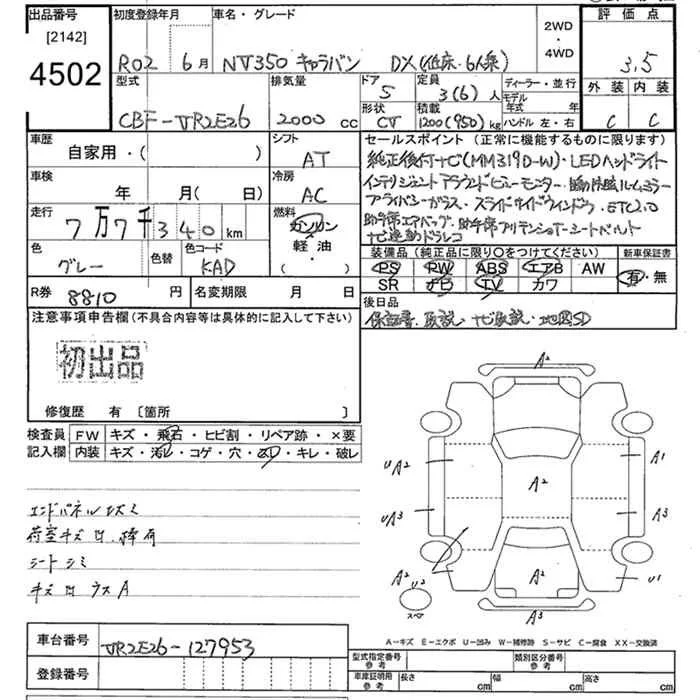 出品番号 初度登録年月 車名・グレード 2WD・4WD 評価点
[2142]
4502
R02 6月 NV350 キャラバン DX(低床・6人乗) 3.5
型式 排気量 ドア 定員 ディーラー・並行 外装 内装
CBF-VR2E26 2000 cc 5 3(6)人 モデル年式 年 C C
形状 積載 ハンドル 左・右
CV 1200(950)kg
車歴 シフト セールスポイント(正常に機能するものに限ります)
自家用・( ) AT 純正後付ナビ(MM319D-W)・LEDヘッドライト
車検 冷房 インテリジェントアラウンドビューモニター・
年 月(日) AC プライバシーガラス・スライドサイドウインドウ・ETC2.0
走行 燃料 助手席エアバッグ・助手席プリテンショナーシートベルト
7万7千340km ガソリン・軽油・( ) ナビ連動ドラレコ
色 色替 色コード 装備品(純正品に限り○をつけてください) 新車保証書
グレー KAD PS PW ABS エアB AW 有・無
SR ナビ TV カワ
R券 8810円 名変期限 月 日 後日品
保証書・取説・ナビ取説・地図SD
注意事項申告欄(不具合内容等は具体的に記入して下さい)
初出品
修復歴 有[箇所 ]
検査員記入欄 FW キズ・飛石・ヒビ割・リペア跡・×要
内装 キズ・汚れ・コゲ・穴・スレ・キレ・破レ
エンドパネル
荷室キズ
シートシミ
キズ
A²
UA² A1
A²
UA³ A3
A² U² A² U1
スペア
A³
A-キズ E-エクボ U-凹み W-補修跡 S-サビ C-腐食 XX-交換済
車台番号 VR2E26-127953
型式指定番号 参考 類別区分番号 参考
登録番号
車庫証明用 参考 長さ cm 幅 cm 高さ cm